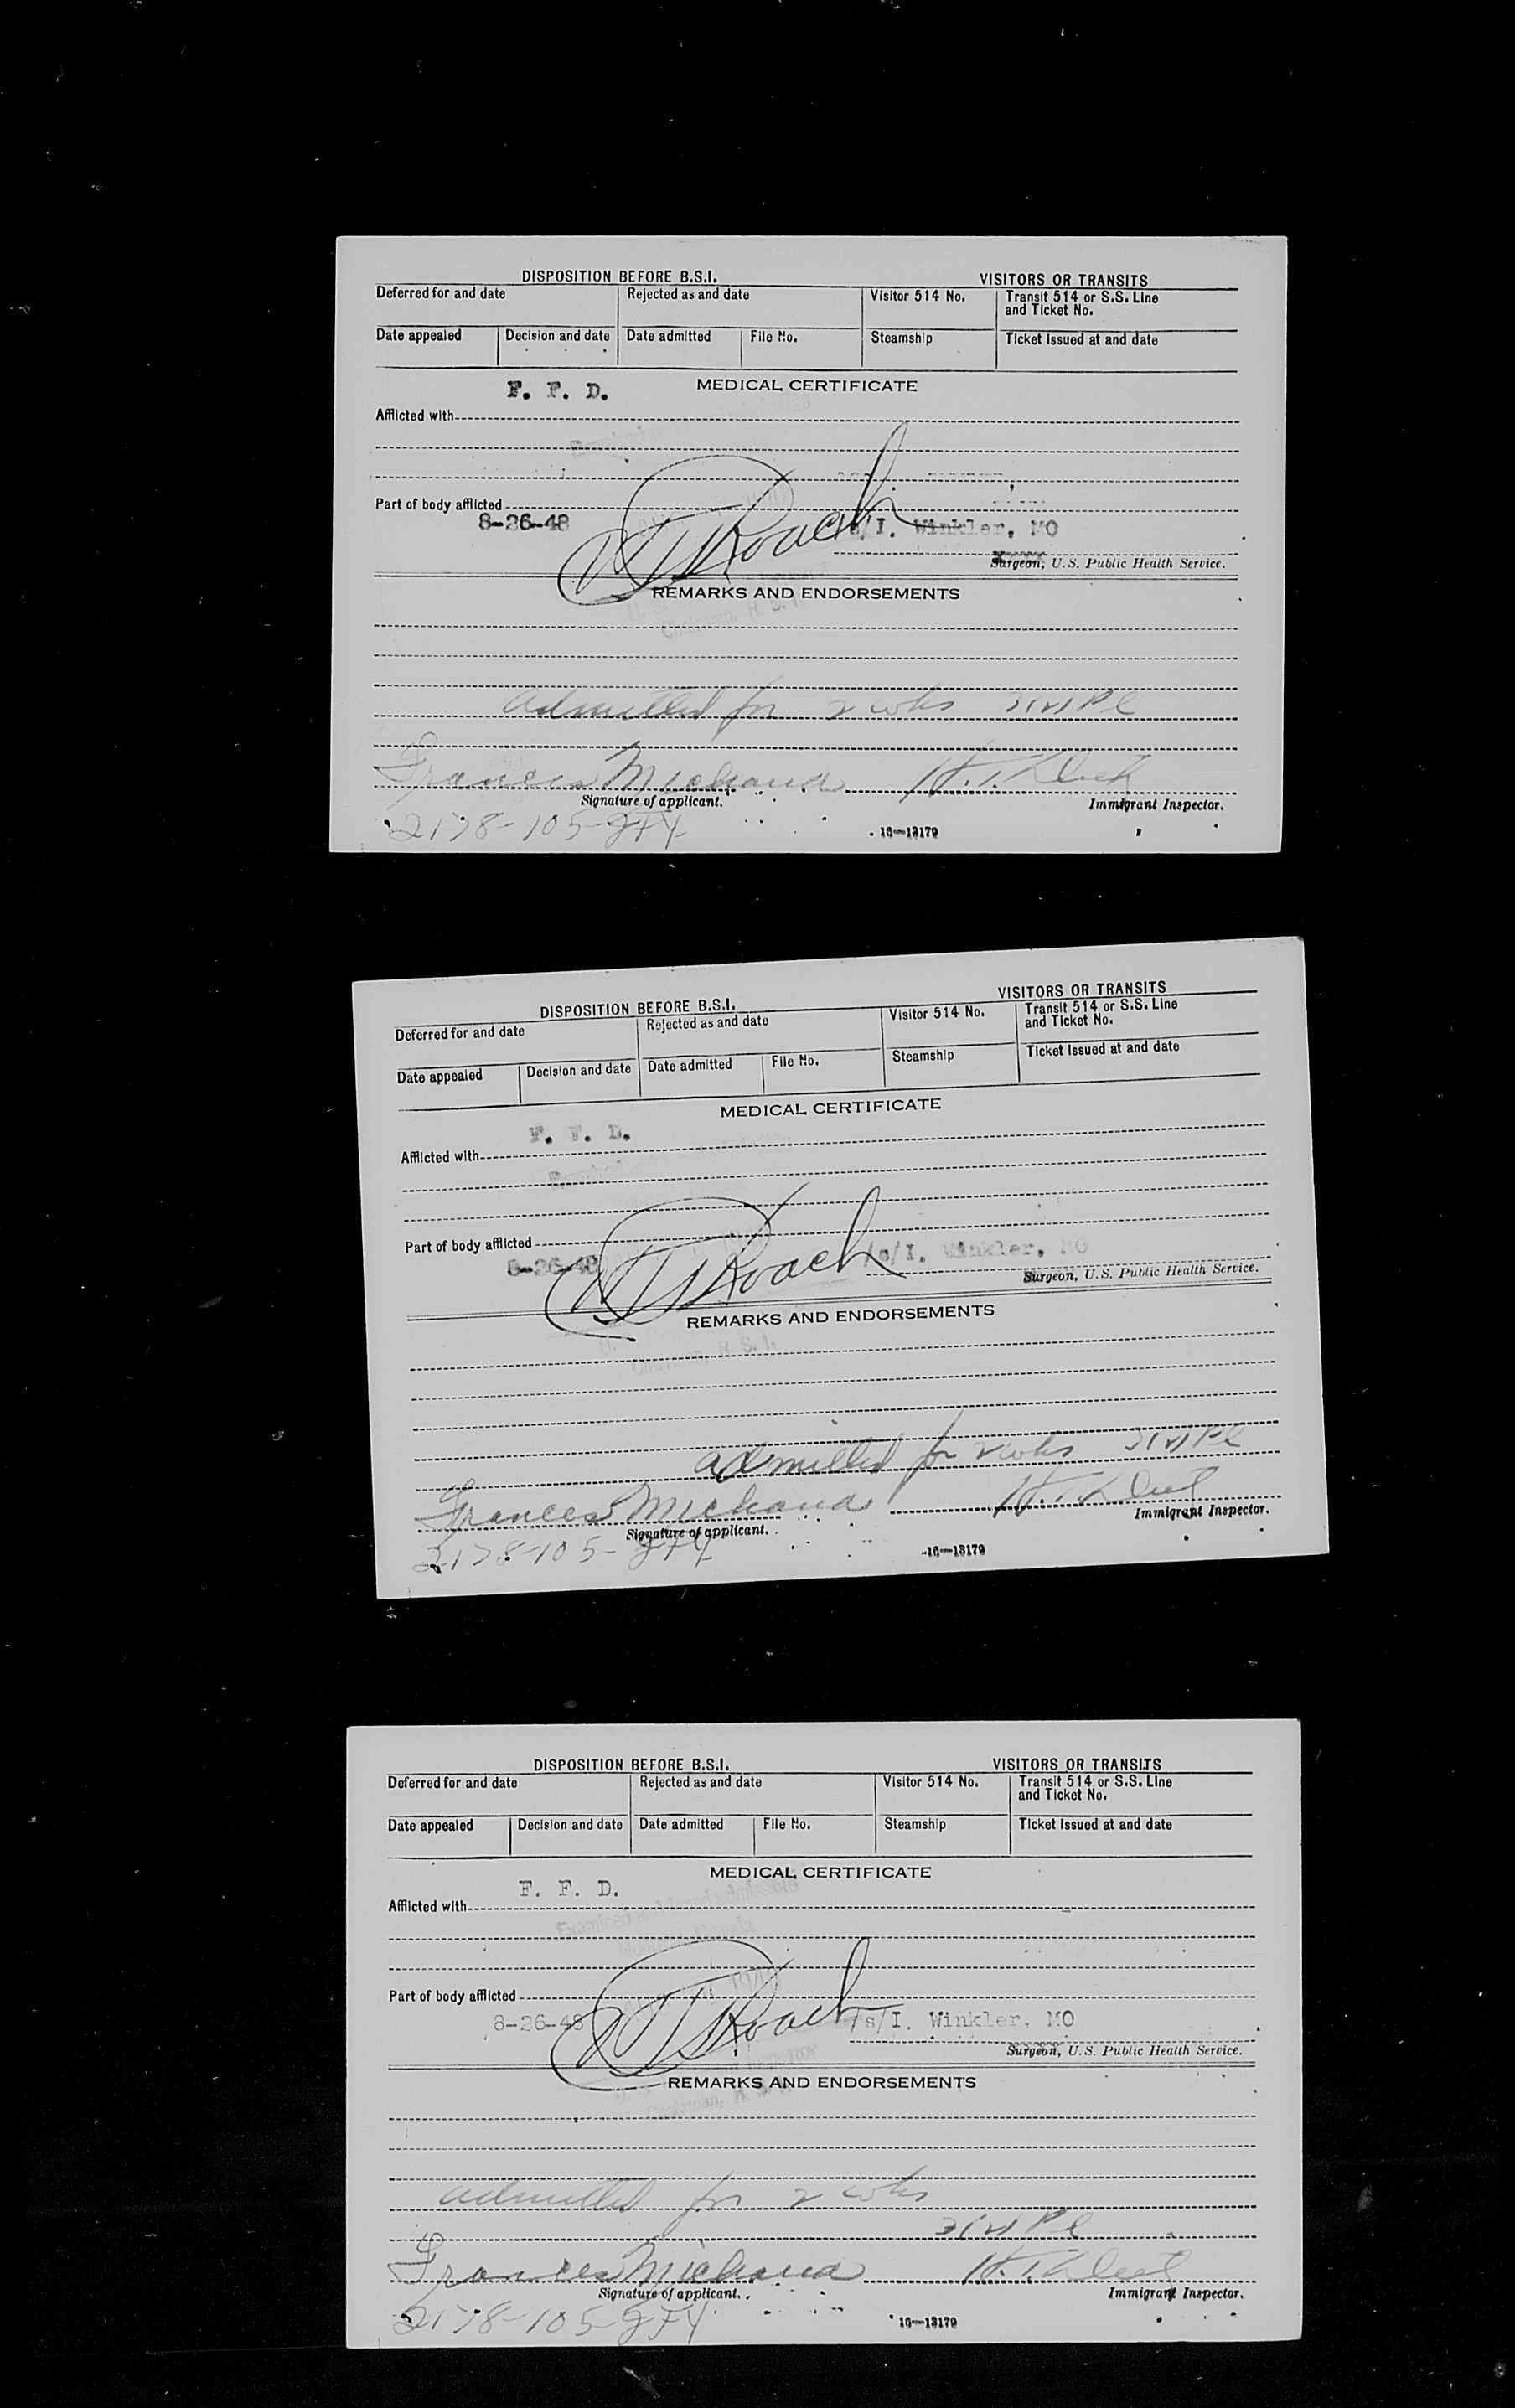 DISPOSITION BEFORE B.S.I. VISITORS OR TRANSITS
Deferred for and date Rejected as and date Visitor 514 No. Transit 514 or S.S. Line and Ticket No.
Date appealed Decision and date Date admitted File No. Steamship Ticket Issued at and date
F. F. D. MEDICAL CERTIFICATE
Afflicted with
Part of body afflicted
8-26-48 Roach /s/ I. Winkler, MO
Surgeon, U.S. Public Health Service.
REMARKS AND ENDORSEMENTS
Chairman, B. S. I.
admitted for 2 wks
Frances Michaud
Signature of applicant. Immigrant Inspector.
2178-105-
16—13179
DISPOSITION BEFORE B.S.I. VISITORS OR TRANSITS
Deferred for and date Rejected as and date Visitor 514 No. Transit 514 or S.S. Line and Ticket No.
Date appealed Decision and date Date admitted File No. Steamship Ticket Issued at and date
MEDICAL CERTIFICATE
F. F. D.
Afflicted with
Part of body afflicted
8-26-48 Roach /s/ I. Winkler, MO
Surgeon, U.S. Public Health Service.
REMARKS AND ENDORSEMENTS
Chairman, B. S. I.
admitted for 2 wks
Frances Michaud
Signature of applicant. Immigrant Inspector.
2178-105-
16—13179
DISPOSITION BEFORE B.S.I. VISITORS OR TRANSITS
Deferred for and date Rejected as and date Visitor 514 No. Transit 514 or S.S. Line and Ticket No.
Date appealed Decision and date Date admitted File No. Steamship Ticket Issued at and date
MEDICAL CERTIFICATE
F. F. D.
Afflicted with
Examined and found admissible
Part of body afflicted
8-26-48 Roach /s/ I. Winkler, MO
Surgeon, U.S. Public Health Service.
REMARKS AND ENDORSEMENTS
admitted for 2 wks
Frances Michaud
Signature of applicant. Immigrant Inspector.
2178-105-
16—13179